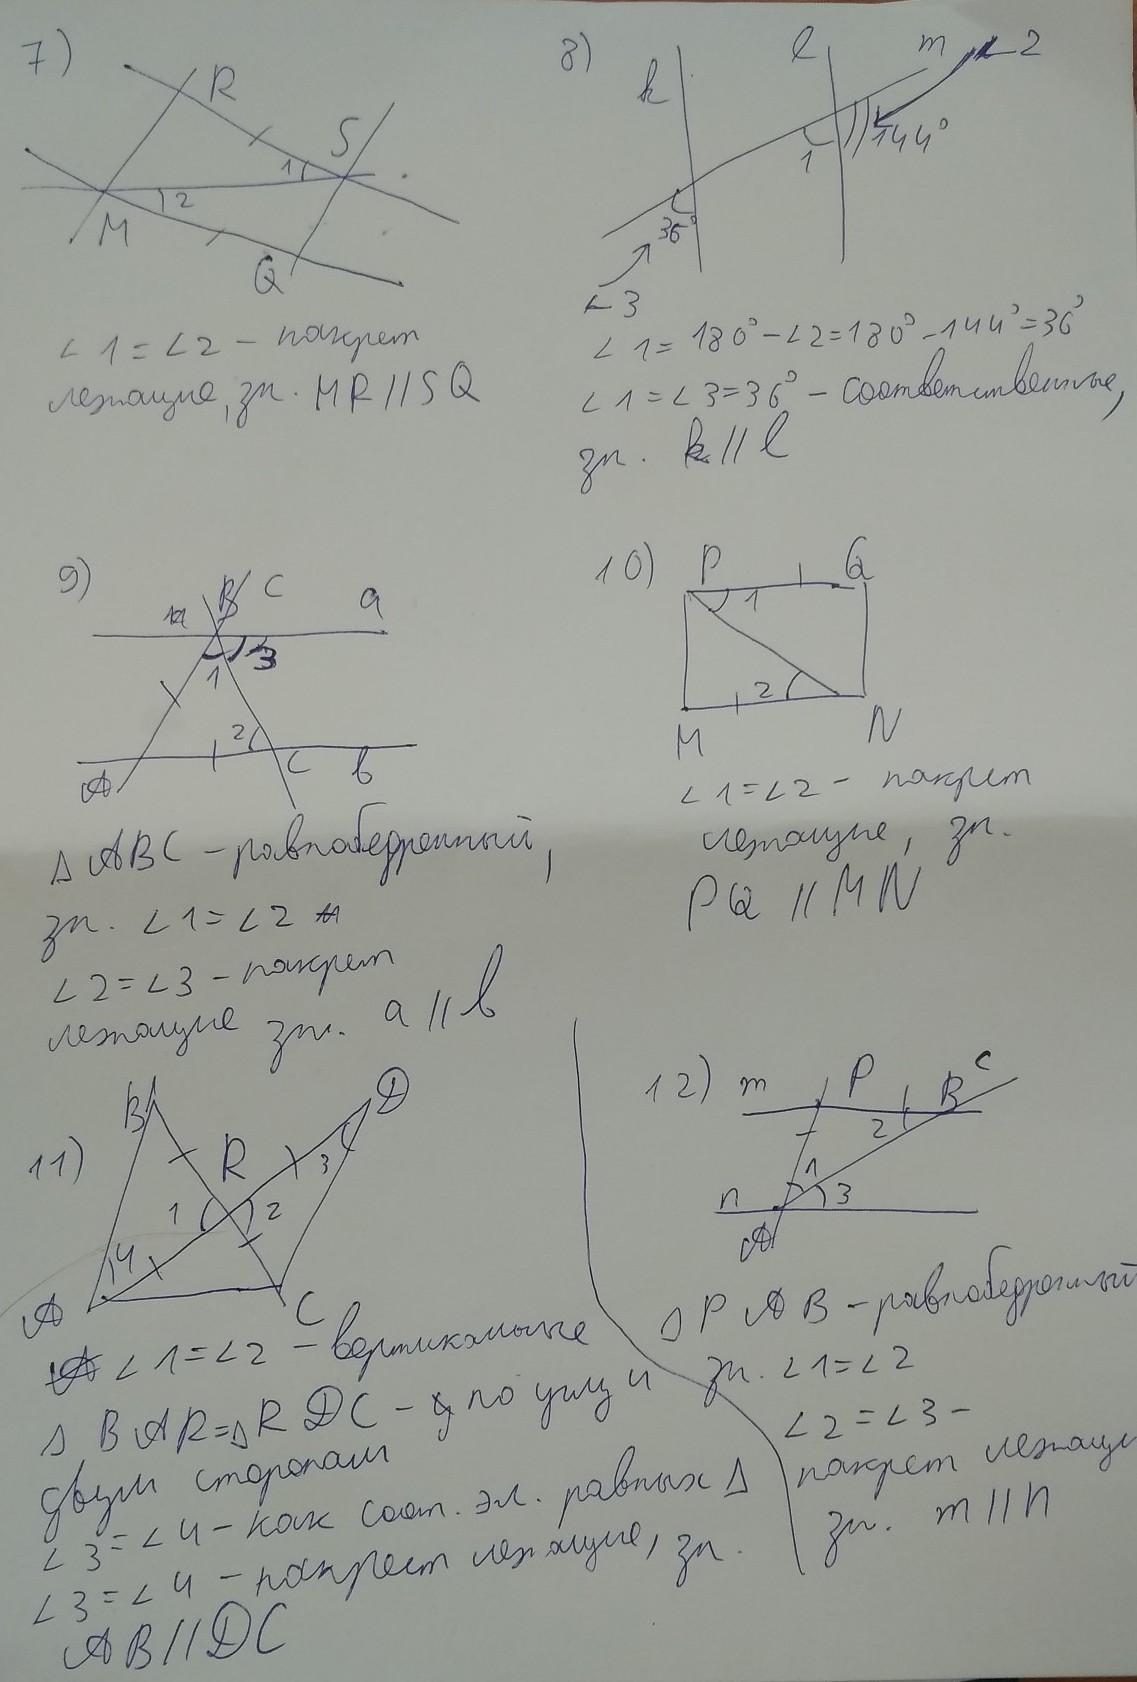 7)
R
S
1
2
M
Q
∠1=∠2 – накрест
лежащие, зн. MR//SQ
8)
k
l
m
∠2
144°
1
36°
∠3
∠1= 180°–∠2=180°–144°=36°
∠1=∠3=36° – соответственные,
зн. k//l
9)
B C
a
1
3
2
A
C
b
△ABC – равнобедренный,
зн. ∠1=∠2
∠2=∠3 – накрест
лежащие зн. a//b
10)
P
Q
1
2
M
N
∠1=∠2 – накрест
лежащие, зн.
PQ//MN
11)
B
D
R
3
1
2
4
A
C
∠1=∠2 – вертикальные
△BAR=△RDC – по углу и
двум сторонам
∠3=∠4 – как соот. эл. равных △
∠3=∠4 – накрест лежащие, зн.
AB//DC
12)
m
P
B
C
2
1
n
3
A
△PAB – равнобедренный
зн. ∠1=∠2
∠2=∠3 –
накрест лежащи
зн. m//n